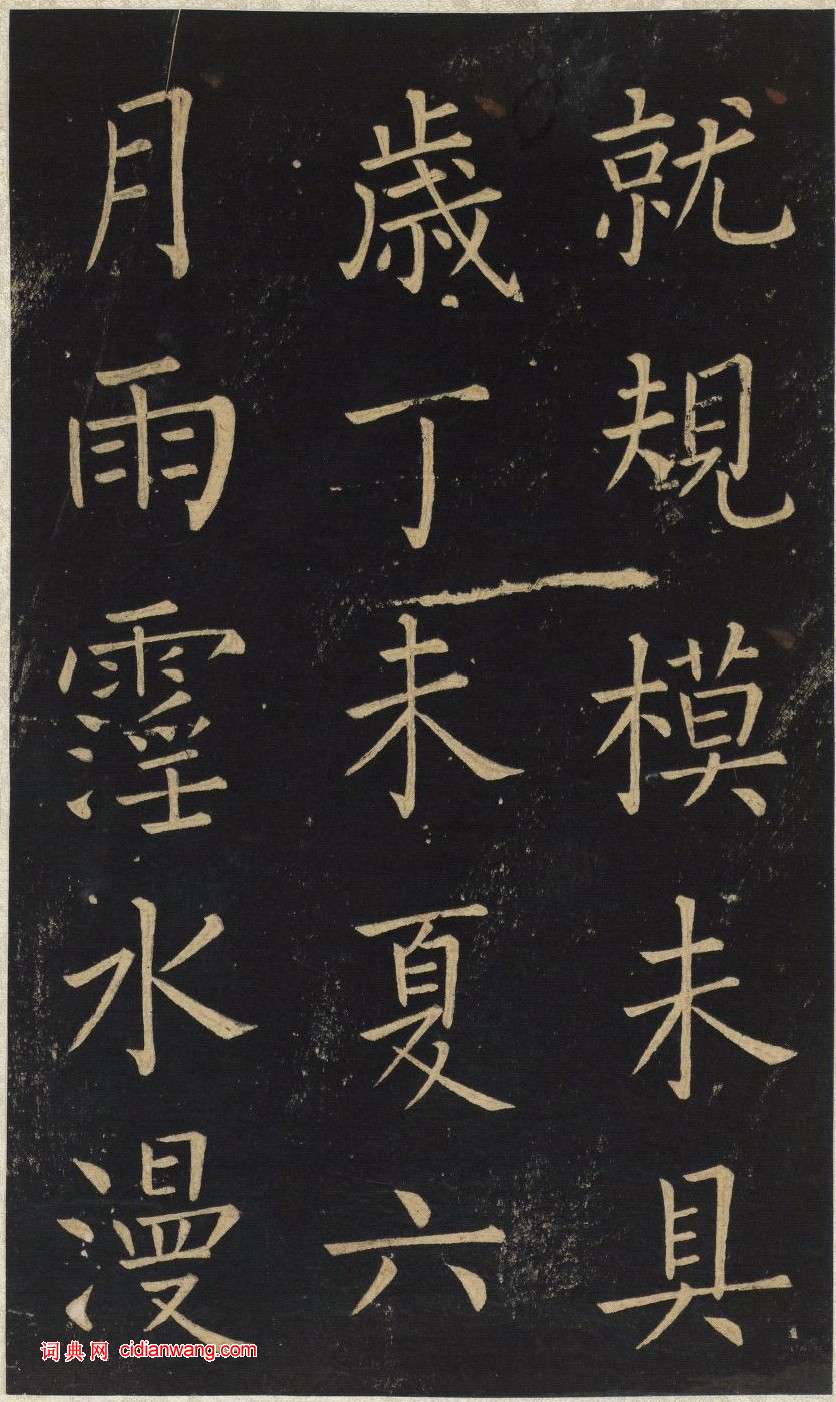 就規模未具
歳丁未夏六
月雨霪水漫
词典网 cidianwang.com